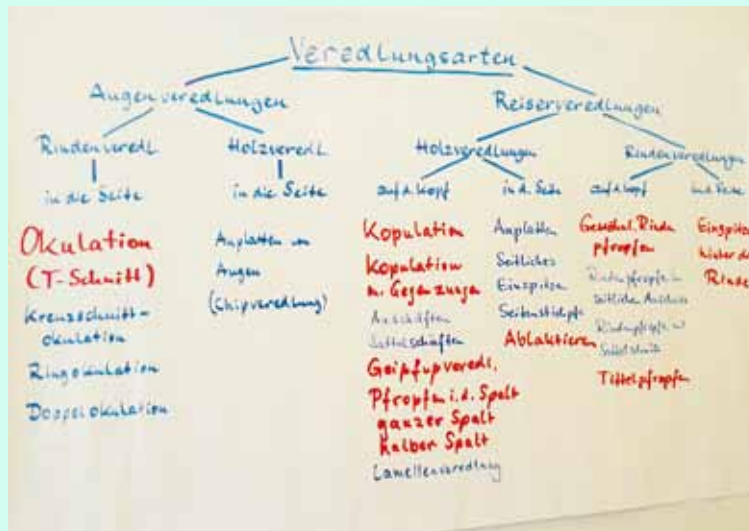 Veredlungsarten
Augenveredlungen
Reiserveredlungen
Rindenveredl.
Holzveredl.
Holzveredlungen
Rindenveredlungen
in die Seite
in die Seite
auf d. Kopf
in d. Seite
auf d. Kopf
in d.
Okulation
(T-Schnitt)
Kreuzschnitt-
okulation
Ringokulation
Doppelokulation
Anplatten von
Augen
(Chipveredlung)
Kopulation
Kopulation
m. Gegenzungen
Anschäften
Sattelschäften
Geißfußveredl.
Pfropfen i. d. Spalt
ganzer Spalt
halber Spalt
Lamellenveredlung
Anplatten
Seitliches
Einspitzen
Ablaktieren
Rinden
pfropfen
Rindenpfropfen
Tittelpfropfen
Einspitzen
hinter d
Rinde